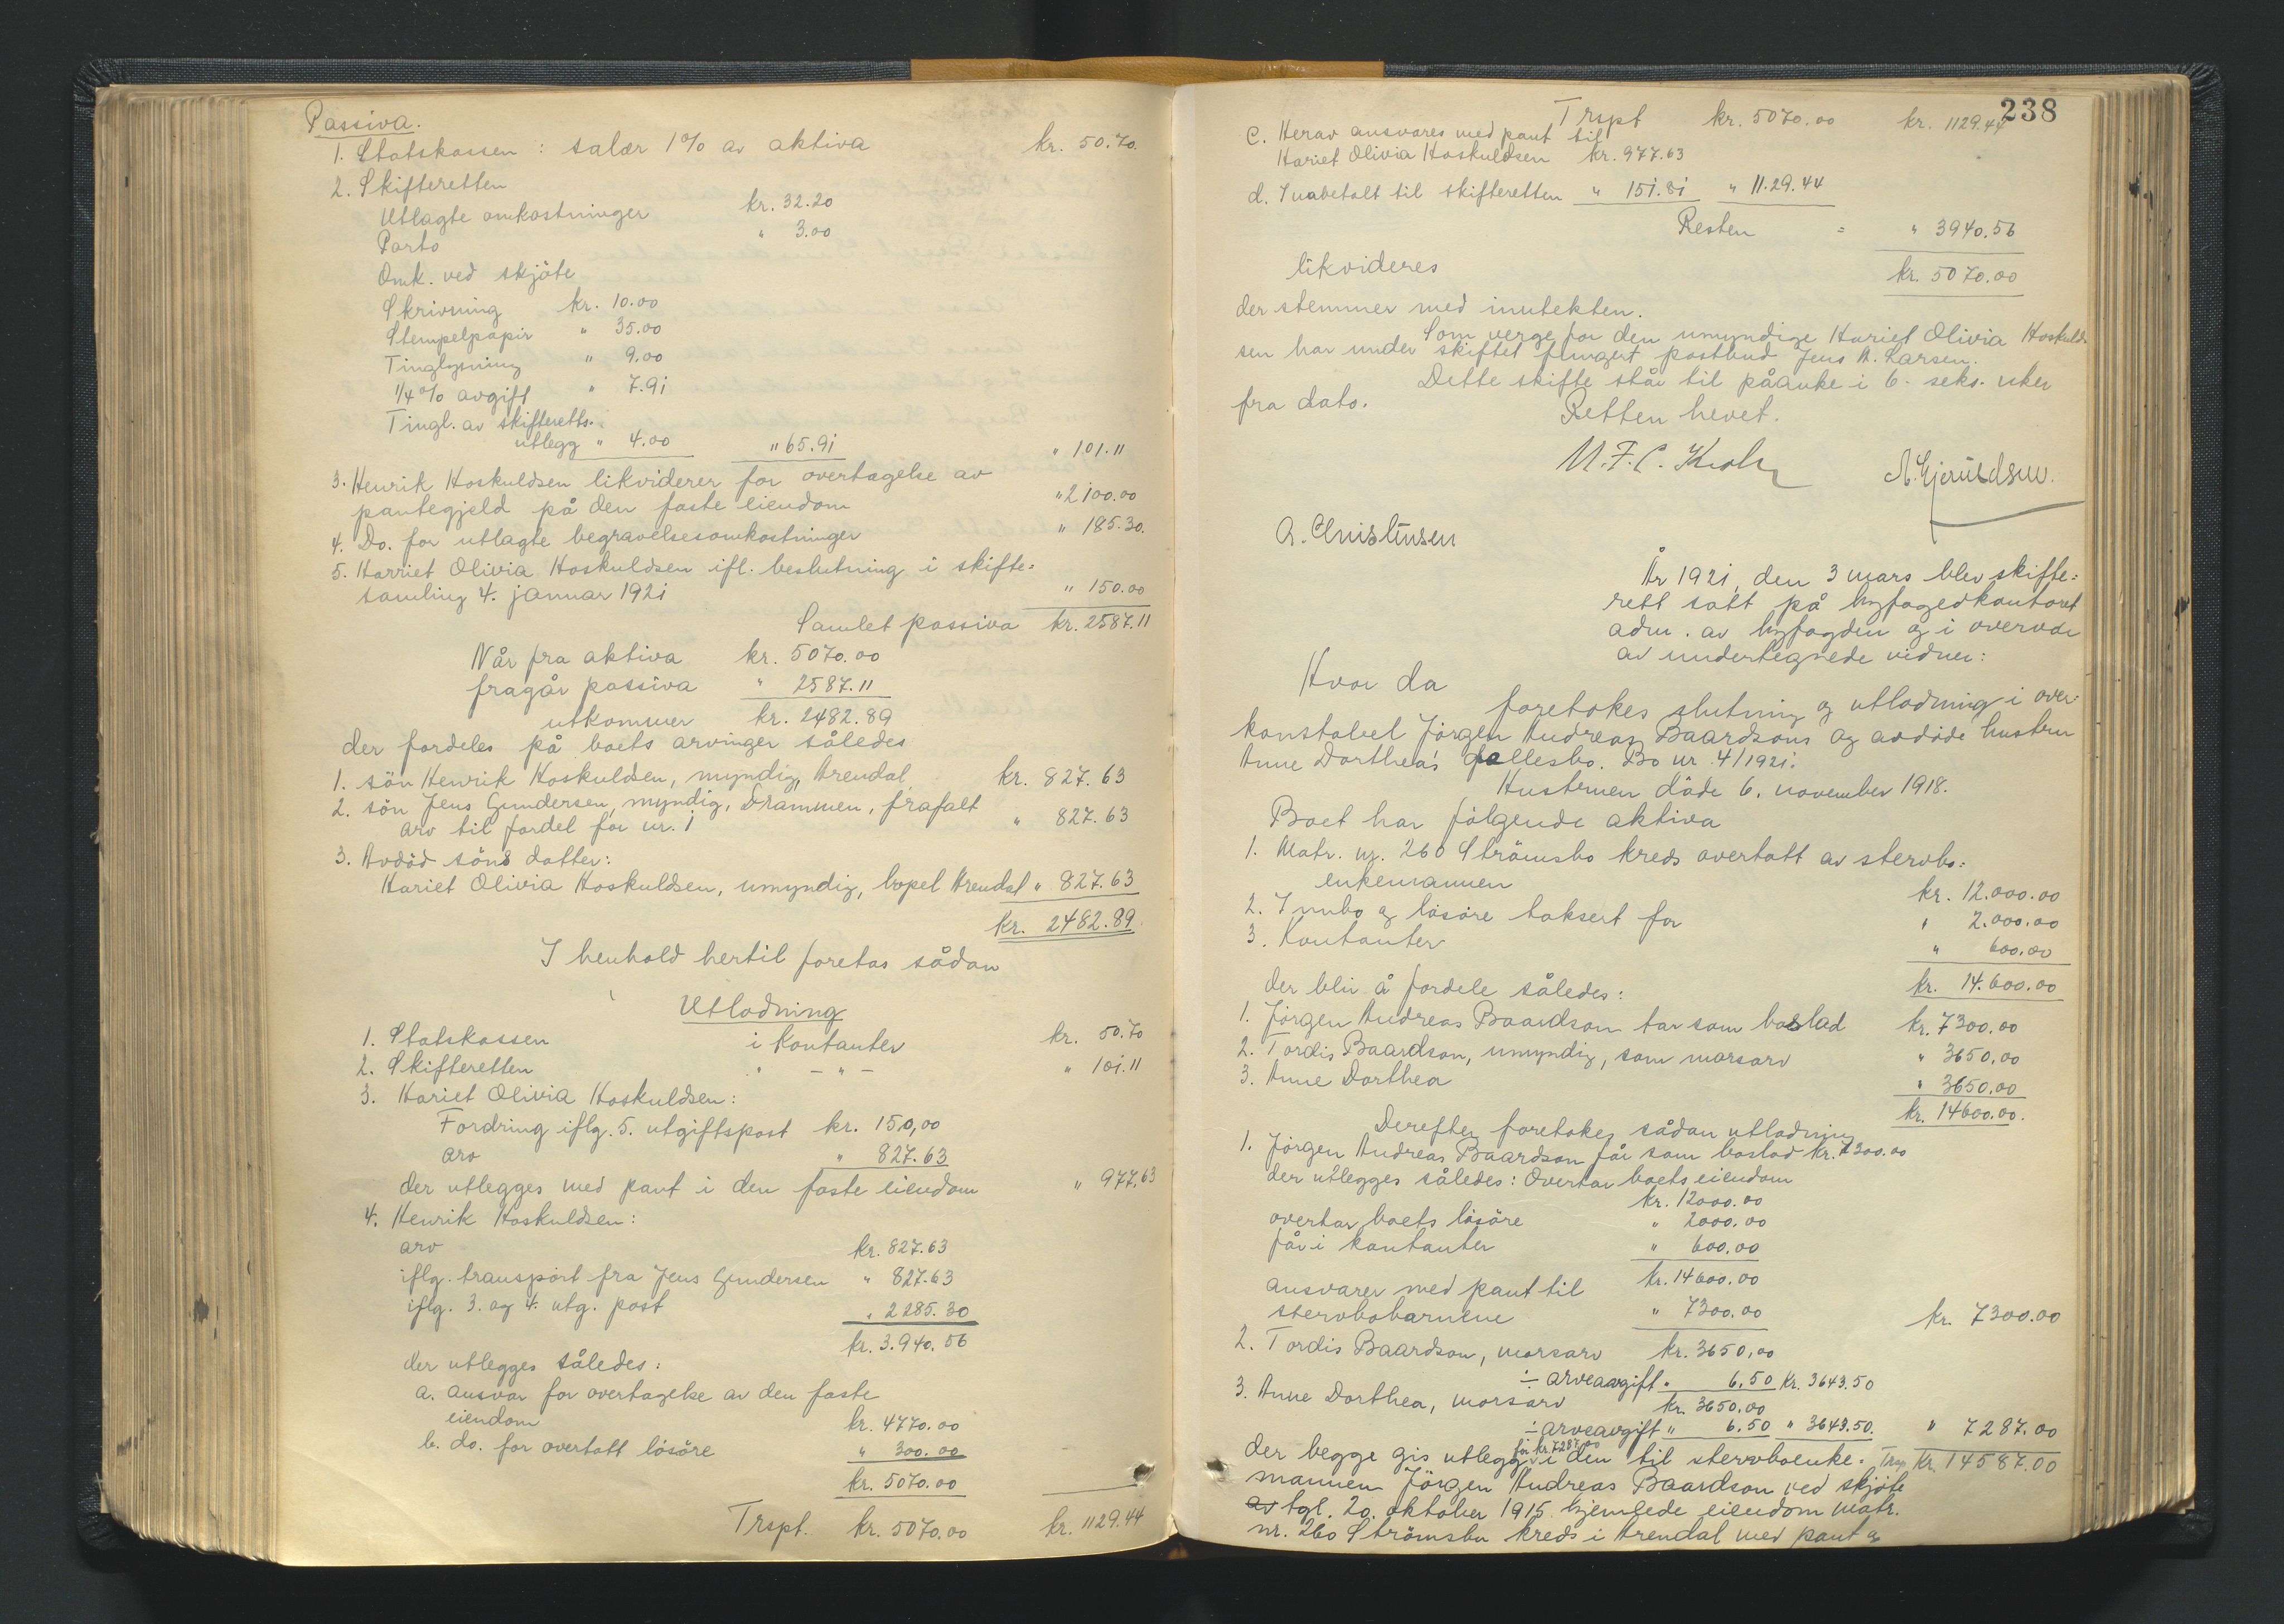 Passiva.
1. Statskassen : salær 1% av aktiva kr. 50.70.
2. Skifteretten
Utlagte omkostninger kr. 32.20
Porto " 3.00
Omk. ved skjöte
Skrivning kr. 10.00
Stempelpapir " 35.00
Tinglysning " 9.00
1/4% avgift " 7.91
Tingl. av skifteretts-
utlegg " 4.00 " 65.91 " 101.11
3. Henrik Hoskuldsen likviderer for overtagelse av
pantegjeld på den faste eiendom " 2100.00
4. Do. for utlagte begravelsesomkostninger " 185.30.
5. Harriet Olivia Hoskuldsen ifl. beslutning i skifte=
samling 4. januar 1921 " 150.00
Samlet passiva kr. 2587.11
Når fra aktiva kr. 5070.00
fragår passiva " 2587.11
utkommer kr. 2482.89
der fordeles på boets arvinger således
1. sön Henrik Hoskuldsen, myndig, Arendal kr. 827.63
2. sön Jens Gundersen, myndig, Drammen, frafalt
arv til fordel for nr. 1 " 827.63
3. Avdöd söns datter:
Hariet Olivia Hoskuldsen, umyndig, bopel Arendal " 827.63
kr. 2482.89.
I henhold hertil foretas sådan
Utlodning
1. Statskassen i kontanter kr. 50.70
2. Skifteretten " - " - " 101.11
3. Hariet Olivia Hoskuldsen:
Fordring iflg. 5. utgiftspost kr. 150,00
arv " 827.63
der utlegges med pant i den faste eiendom " 977.63
4. Henrik Hoskuldsen:
arv kr. 827.63
iflg. transport fra Jens Gundersen " 827.63
iflg. 3. og 4. utg. post " 2285.30
kr. 3.940.56
der utlegges således:
a. ansvar for overtagelse av den faste
eiendom kr. 4770.00
b. do. for overtatt lösöre " 300.00
kr. 5070.00
Trspt. kr. 5070.00 kr. 1129.44
238
Trspt kr. 5070.00 kr. 1129.44
c. Herav ansvares med pant til
Hariet Olivia Hoskuldsen kr. 977.63
d. Innbetalt til skifteretten " 151.81 " 11.29.44
Resten = " 3940.56
likvideres kr. 5070.00
der stemmer med inntekten.
Som verge for den umyndige Hariet Olivia Hoskuld-
sen har under skiftet fungert postbud Jens A. Larsen.
Dette skifte står til påanke i 6- seks. uker
fra dato.
Retten hevet.
A. Christensen
År 1921, den 3 mars blev skifte=
rett satt på byfogedkontoret
adm. av byfogden og i overvær
av undertegnede vidner:
Hvor da
foretokes slutning og utlodning i over-
konstabel Jörgen Andreas Baardsons og avdöde hustru
Anne Dorthea's fellesbo. Bo nr. 4/1921.
Hustruen döde 6. november 1918.
Boet har fölgende aktiva
1. Matr. nr. 260 Strömsbo kreds overtatt av stervbo-
enkemannen kr. 12.000.00
2. Innbo og lösöre taksert for " 2.000.00
3. Kontanter " 600.00
kr. 14.600.00
der blir å fordele således:
1. Jörgen Andreas Baardson tar som boslod kr. 7300.00
2. Tordis Baardson, umyndig, som morsarv " 3650.00
3. Anne Dorthea " 3650.00
kr. 14600.00.
Derefter foretokes sådan utlodning
1. Jörgen Andreas Baardson får som boslod kr. 7300.00
der utlegges således: Overtar boets eiendom
kr. 12000.00
overtar boets lösöre " 2000.00
får i kontanter " 600.00
kr. 14600.00
ansvarer med pant til
stervbobarnene " 7300.00 kr. 7300.00
2. Tordis Baardson, morsarv kr. 3650.00
÷ arveavgift " 6.50 kr. 3643.50
3. Anne Dorthea, morsarv kr. 3650.00
÷ arveavgift " 6.50 " 3643.50. " 7287.00
for kr. 7287.00
der begge gis utlegg i den til stervboenke- Trsp. kr. 14587.00
mannen Jörgen Andreas Baardson ved skjöte
av tgl. 20. oktober 1915 hjemlede eiendom matr.
nr. 260 Strömsbu kreds i Arendal med pant og